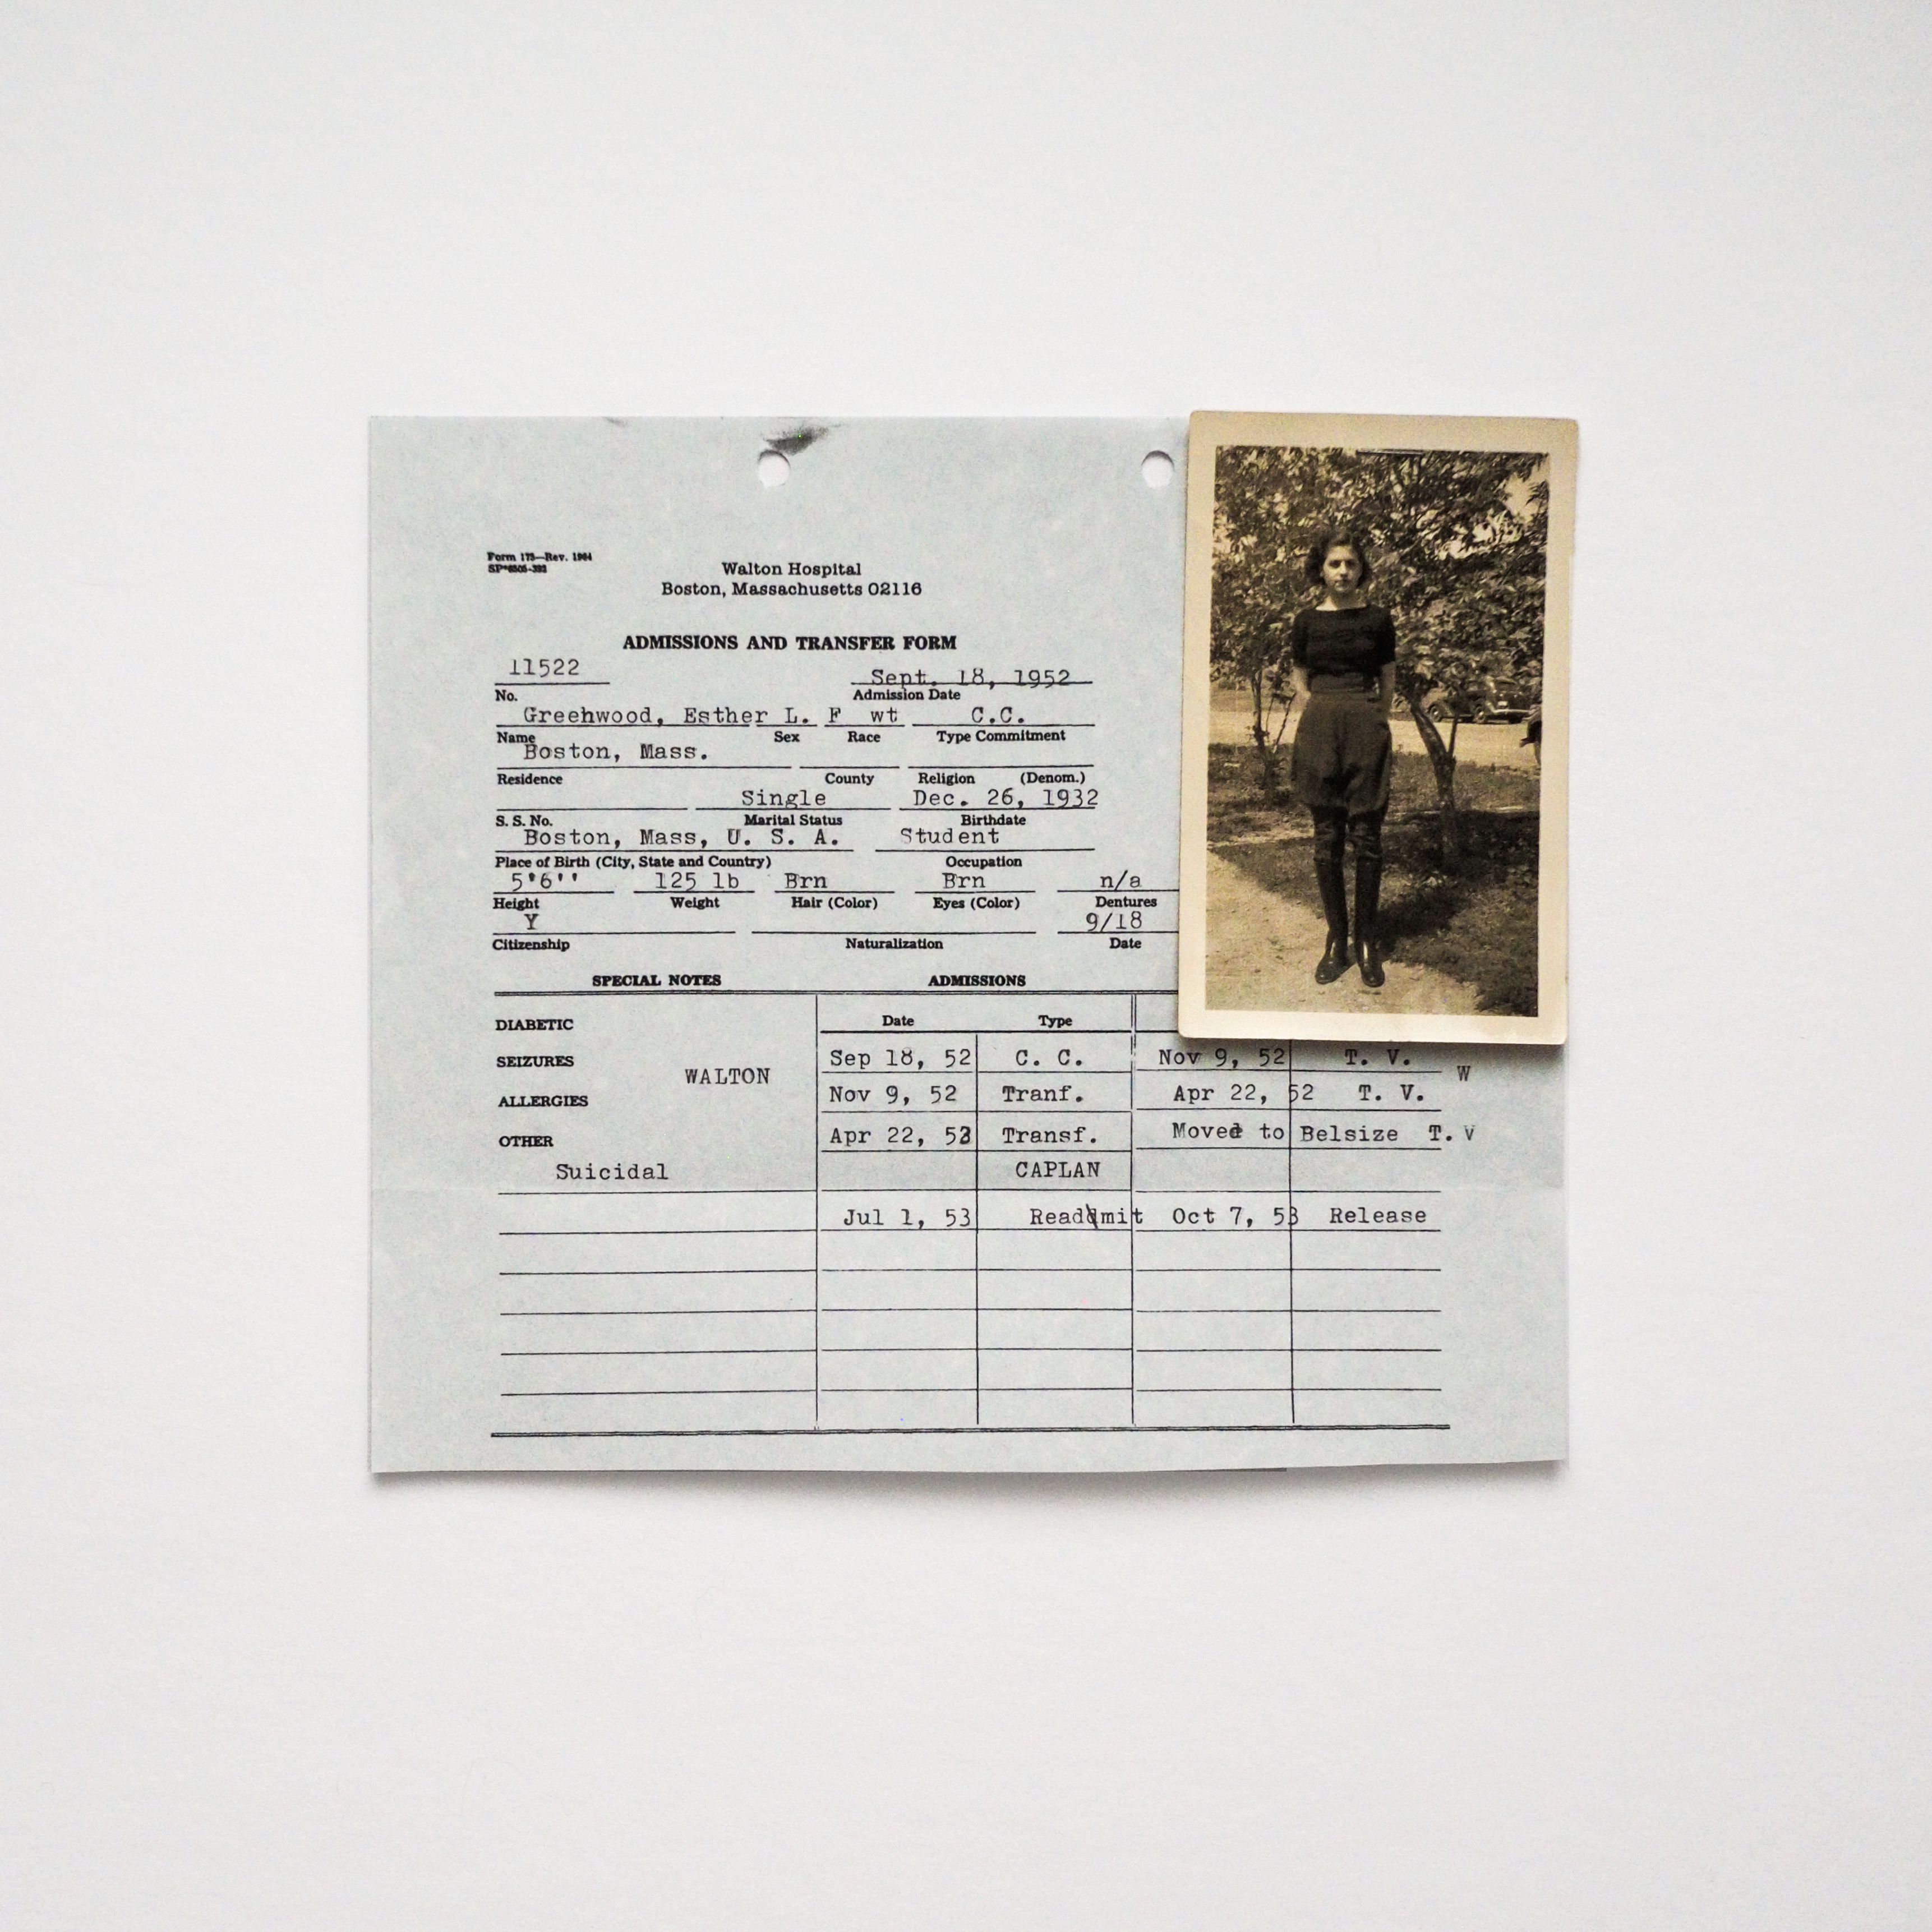 Form 173—Rev. 1964
Walton Hospital
Boston, Massachusetts 02116
ADMISSIONS AND TRANSFER FORM
11522 Sept. 18, 1952
No. Admission Date
Greehwood, Esther L. F wt C.C.
Name Sex Race Type Commitment
Boston, Mass.
Residence County Religion (Denom.)
Single Dec. 26, 1932
S. S. No. Marital Status Birthdate
Boston, Mass, U. S. A. Student
Place of Birth (City, State and Country) Occupation
5'6'' 125 lb Brn Brn n/a
Height Weight Hair (Color) Eyes (Color) Dentures
Y 9/18
Citizenship Naturalization Date
SPECIAL NOTES ADMISSIONS
DIABETIC Date Type
SEIZURES Sep 18, 52 C. C. Nov 9, 52 T. V.
WALTON W
ALLERGIES Nov 9, 52 Tranf. Apr 22, 52 T. V.
OTHER Apr 22, 53 Transf. Moved to Belsize T. V
Suicidal CAPLAN
Jul 1, 53 Readmit Oct 7, 53 Release